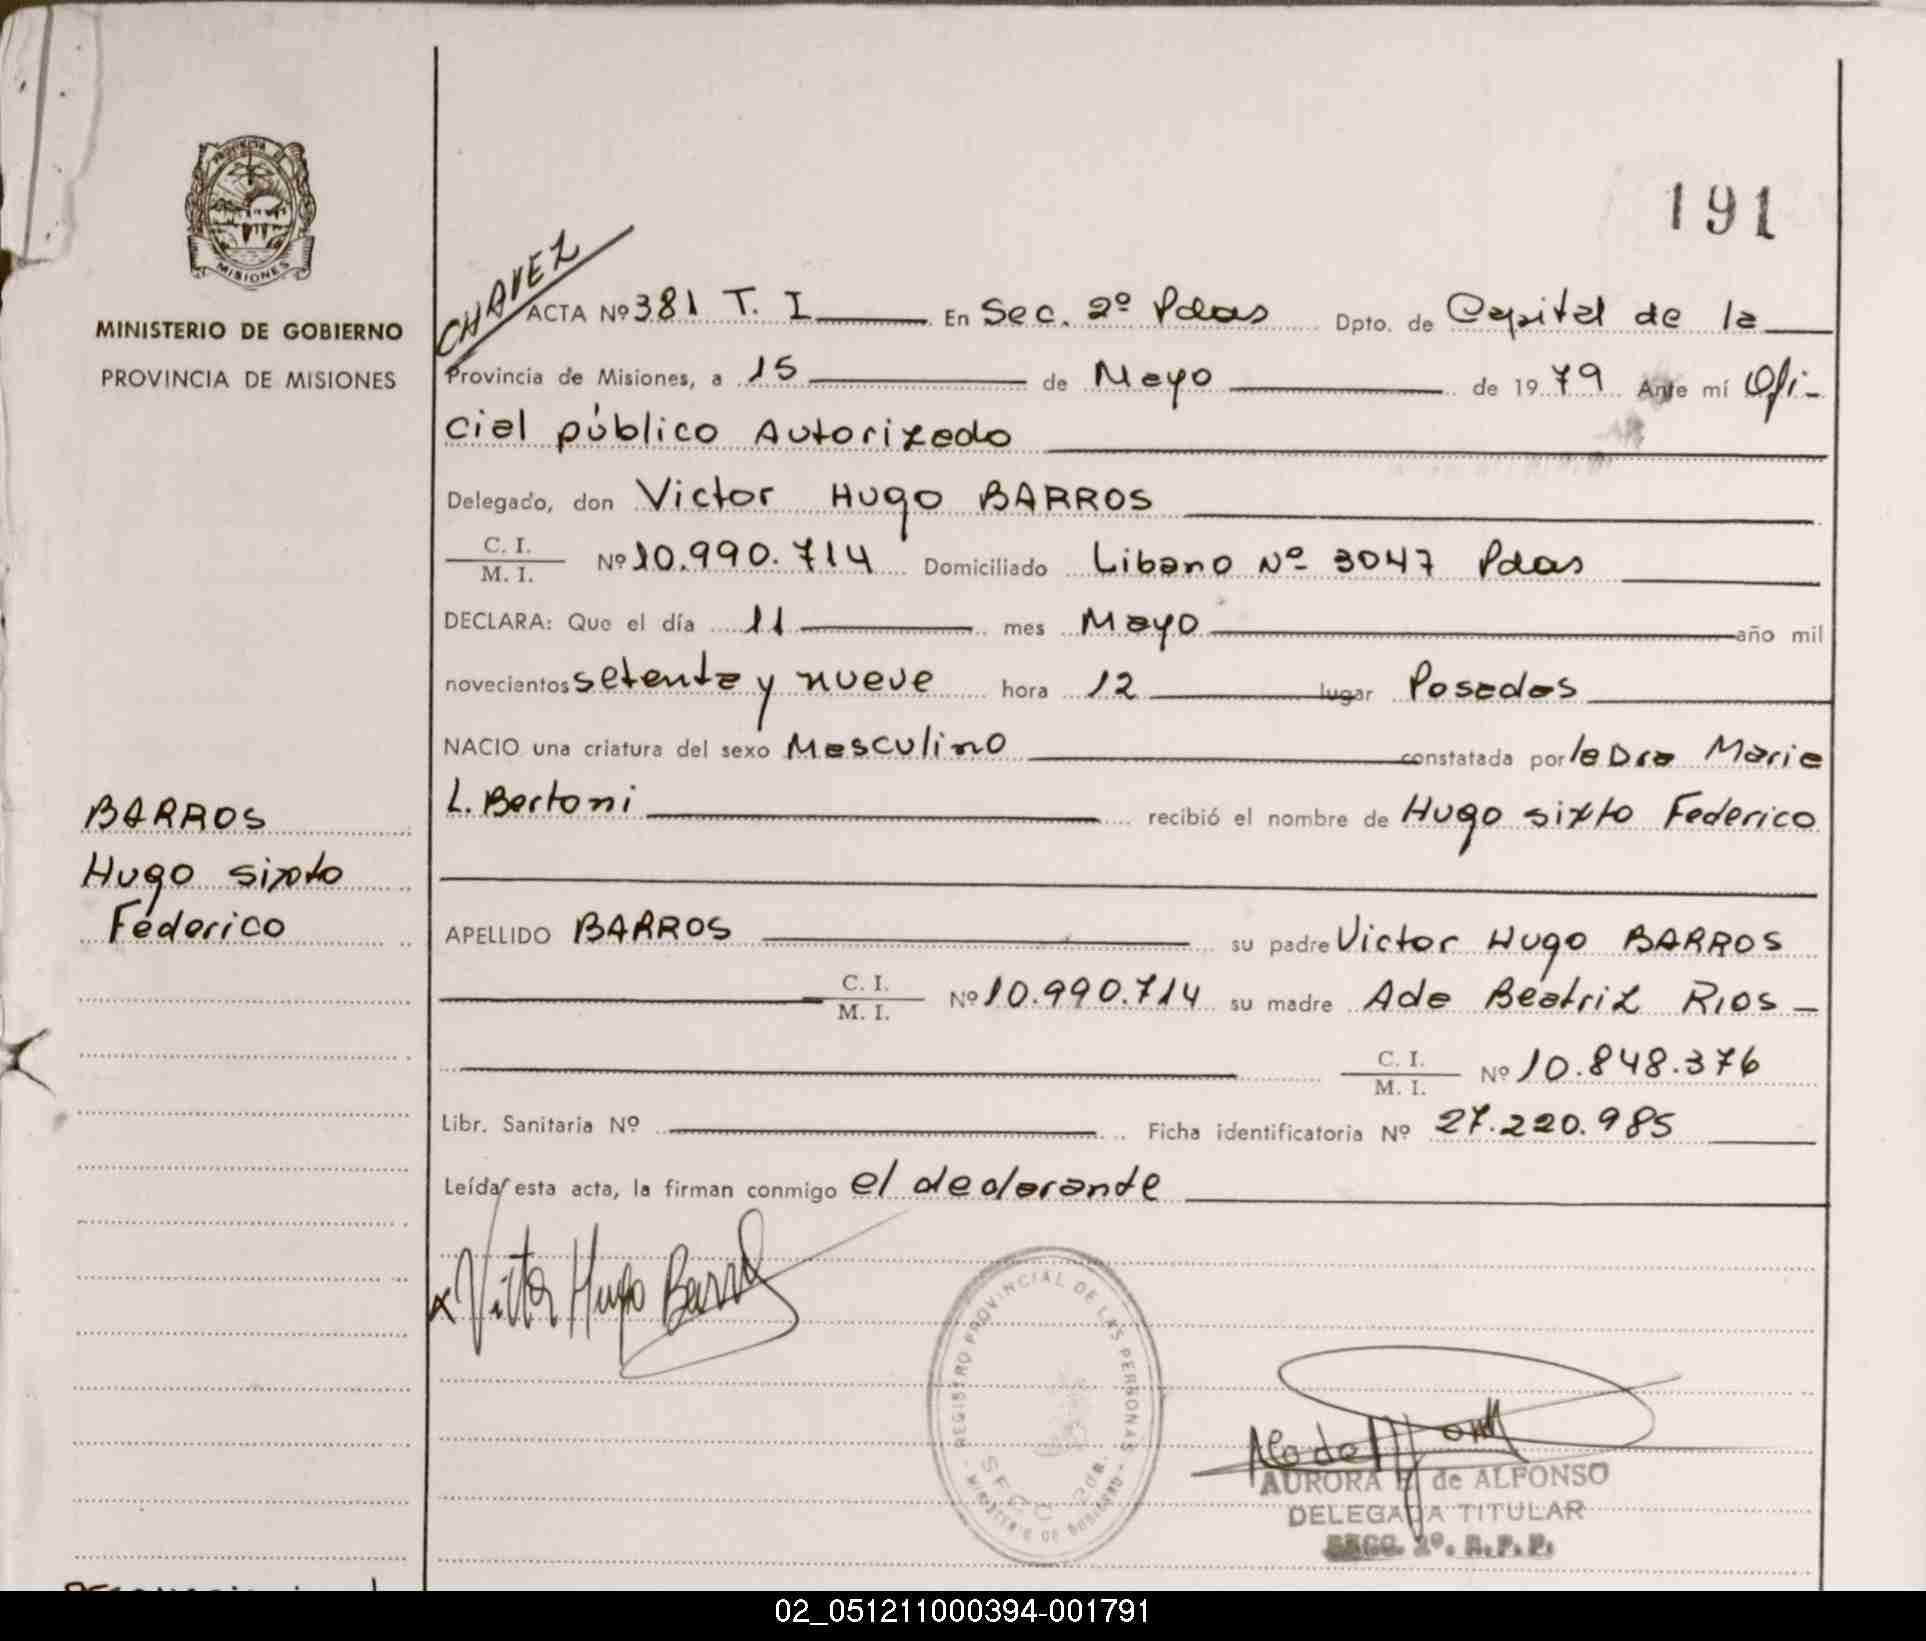 191
PROVINCIA DE
MISIONES
MINISTERIO DE GOBIERNO
PROVINCIA DE MISIONES
CHAVEZ
ACTA Nº 381 T. I En Sec. 2º Pdas Dpto. de Capital de la
Provincia de Misiones, a 15 de Mayo de 1979 Ante mí Ofi-
cial público Autorizado
Delegado, don Victor Hugo BARROS
C. I.
M. I. Nº 10.990.714 Domiciliado Libano Nº 3047 Pdas
DECLARA: Que el día 11 mes Mayo año mil
novecientos setenta y nueve hora 12 lugar Posadas
NACIO una criatura del sexo Masculino constatada por la Dra Maria
L. Bertoni recibió el nombre de Hugo sixto Federico
BARROS
Hugo sixto
Federico
APELLIDO BARROS su padre Victor Hugo BARROS
C. I.
M. I. Nº 10.990.714 su madre Ada Beatriz RIOS -
C. I.
M. I. Nº 10.848.376
Libr. Sanitaria Nº Ficha identificatoria Nº 27.220.985
Leída esta acta, la firman conmigo el declarante
x Victor Hugo Barros
REGISTRO PROVINCIAL DE LAS PERSONAS
MINISTERIO DE GOBIERNO
AURORA E. de ALFONSO
DELEGADA TITULAR
SECC. 2º. R.P.P.
02_051211000394-001791